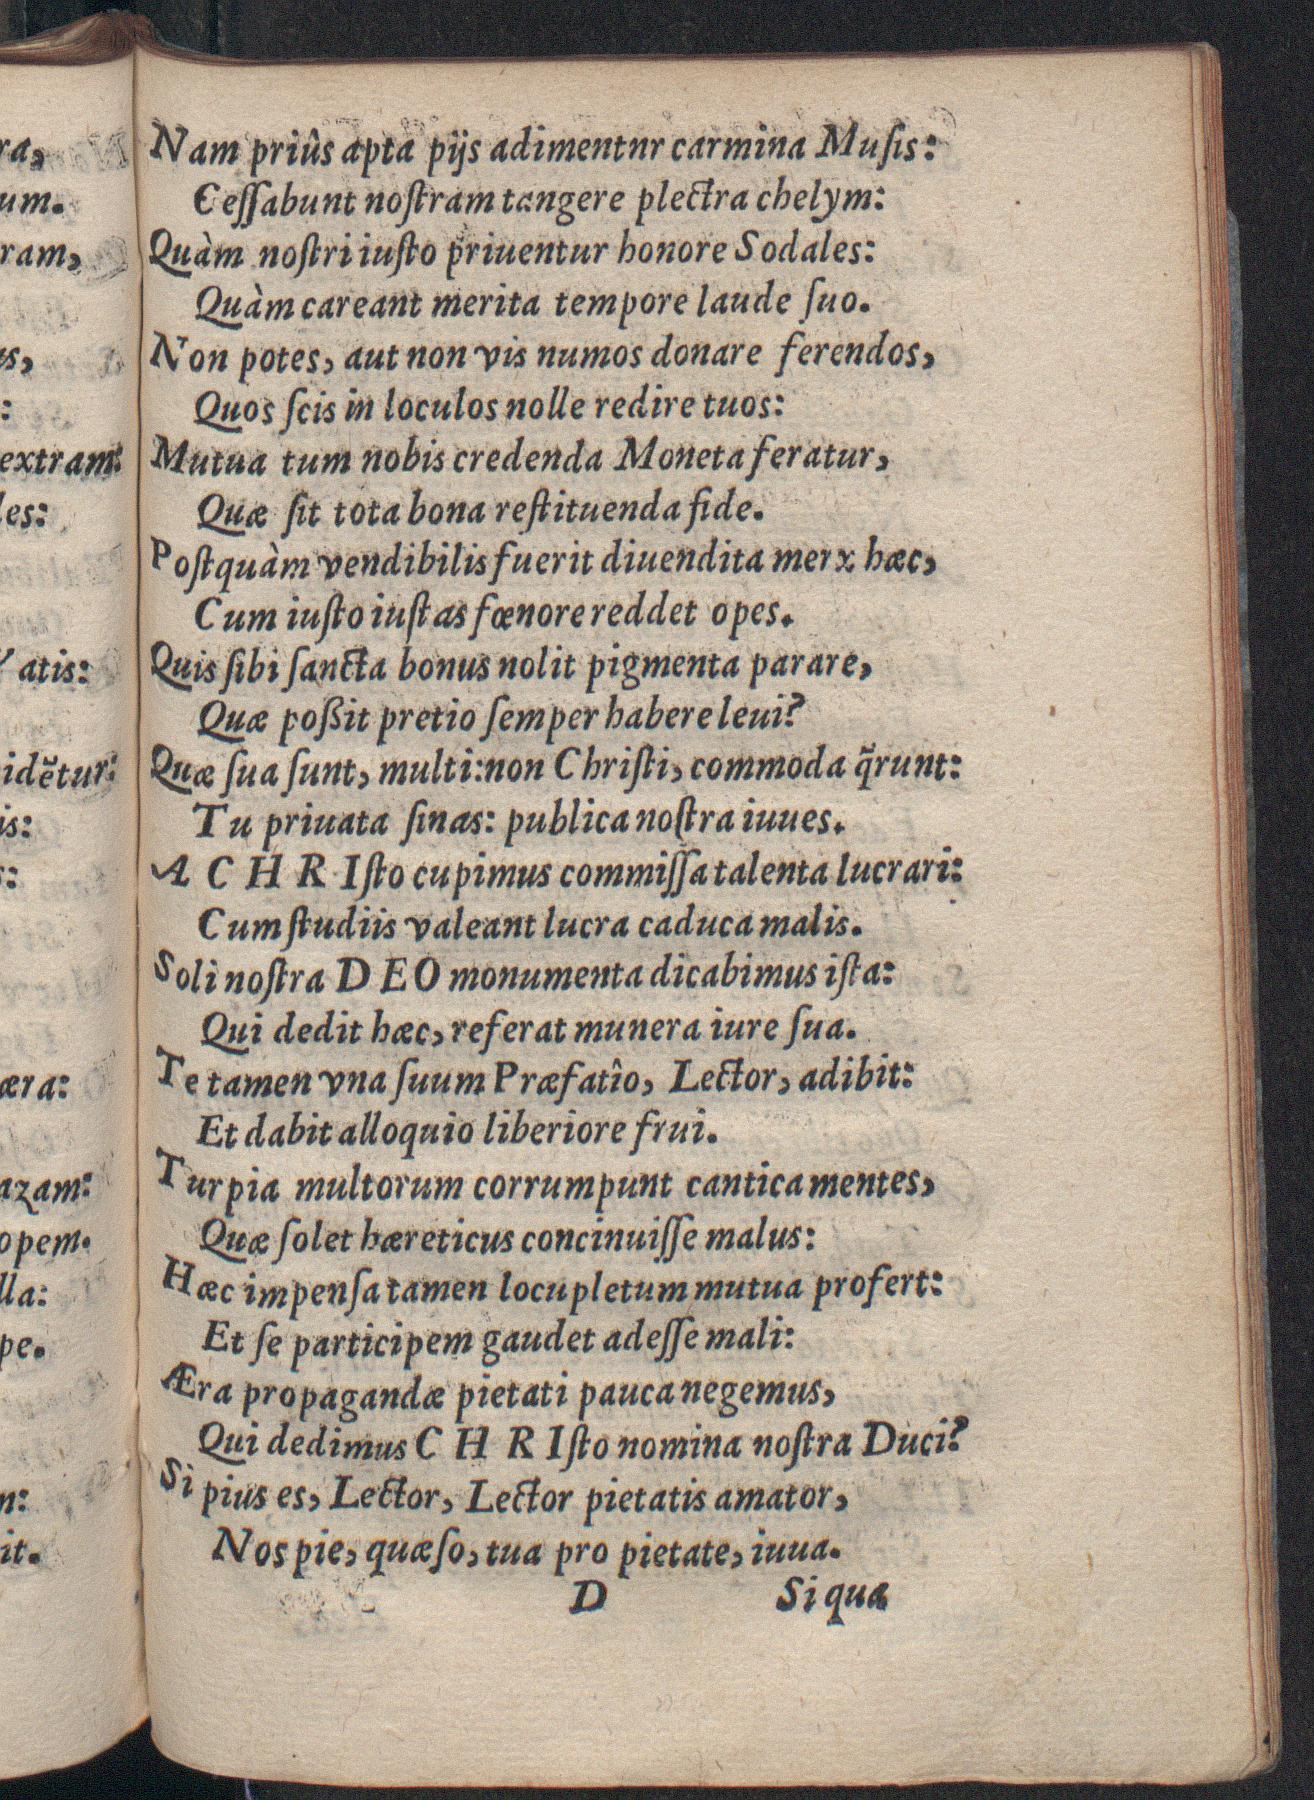 Nam priûs apta pijs adimentnr carmina Muſis:
Ceſſabunt noſtram tangere plectra chelym:
Quàm noſtri iuſto priuentur honore Sodales:
Quàm careant merita tempore laude ſuo.
Non potes, aut non vis numos donare ferendos,
Quos ſcis in loculos nolle redire tuos:
Mutua tum nobis credenda Moneta feratur,
Quæ ſit tota bona reſtituenda fide.
Poſtquàm vendibilis fuerit diuendita merx hæc,
Cum iuſto iuſtas fœnore reddet opes.
Quis ſibi ſancta bonus nolit pigmenta parare,
Quæ poßit pretio ſemper habere leui?
Quæ ſua ſunt, multi: non Chriſti, commoda q̃runt:
Tu priuata ſinas: publica noſtra iuues.
A CHRIſto cupimus commiſſa talenta lucrari:
Cum ſtudiis valeant lucra caduca malis.
Soli noſtra DEO monumenta dicabimus iſta:
Qui dedit hæc, referat munera iure ſua.
Te tamen vna ſuum Præfatîo, Lector, adibit:
Et dabit alloquio liberiore frui.
Turpia multorum corrumpunt cantica mentes,
Quæ ſolet hæreticus concinuiſſe malus:
Hæc impenſa tamen locupletum mutua profert:
Et ſe participem gaudet adeſſe mali:
Æra propagandæ pietati pauca negemus,
Qui dedimus CHRIſto nomina noſtra Duci?
Si pius es, Lector, Lector pietatis amator,
Nos pie, quæſo, tua pro pietate, iuua.
D Si qua